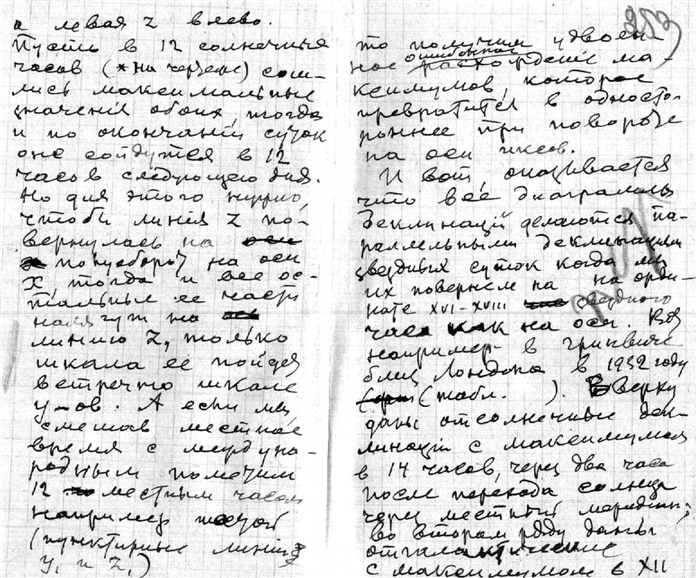 а левая z влево.
Пусть в 12 солнечных
часов (* на чертеже) сош-
лись максимальные
значения обоих, тогда
и по окончании суток
оне сойдутся в 12
часов следующего дня.
Но для этого нужно,
чтобы линия z по-
вернулась на
полуоборот на оси
X, тогда и все ос-
тальные ее части
налягут на
линию Z, только
шкала ее пойдет
встречно шкале
у-ов. А если мы
смешав местное
время с междуна-
родным пометим
12 местным часом
например
(пунктирные линии
y, и z,)
то получим удвоен-
ное ошибочное расхождение ма-
ксимумов, которое
превратится в односто-
роннее при повороте
на оси иксов.
И вот оказывается
что все диаграммы
деклинаций делаются па-
раллельными деклинациям
звездных суток когда мы
их повернем на на орди-
нате XVI-XVIII звездного
часа как на оси. Вот
например в Гринвиче
близ Лондона в 1932 году
(табл. ). Вверху
даны отсолнечные дек-
линации с максимумом
в 14 часов, через два часа
после перехода солнца
через местный меридиан;
во втором ряду даны
отгалактические
с максимумом в XII